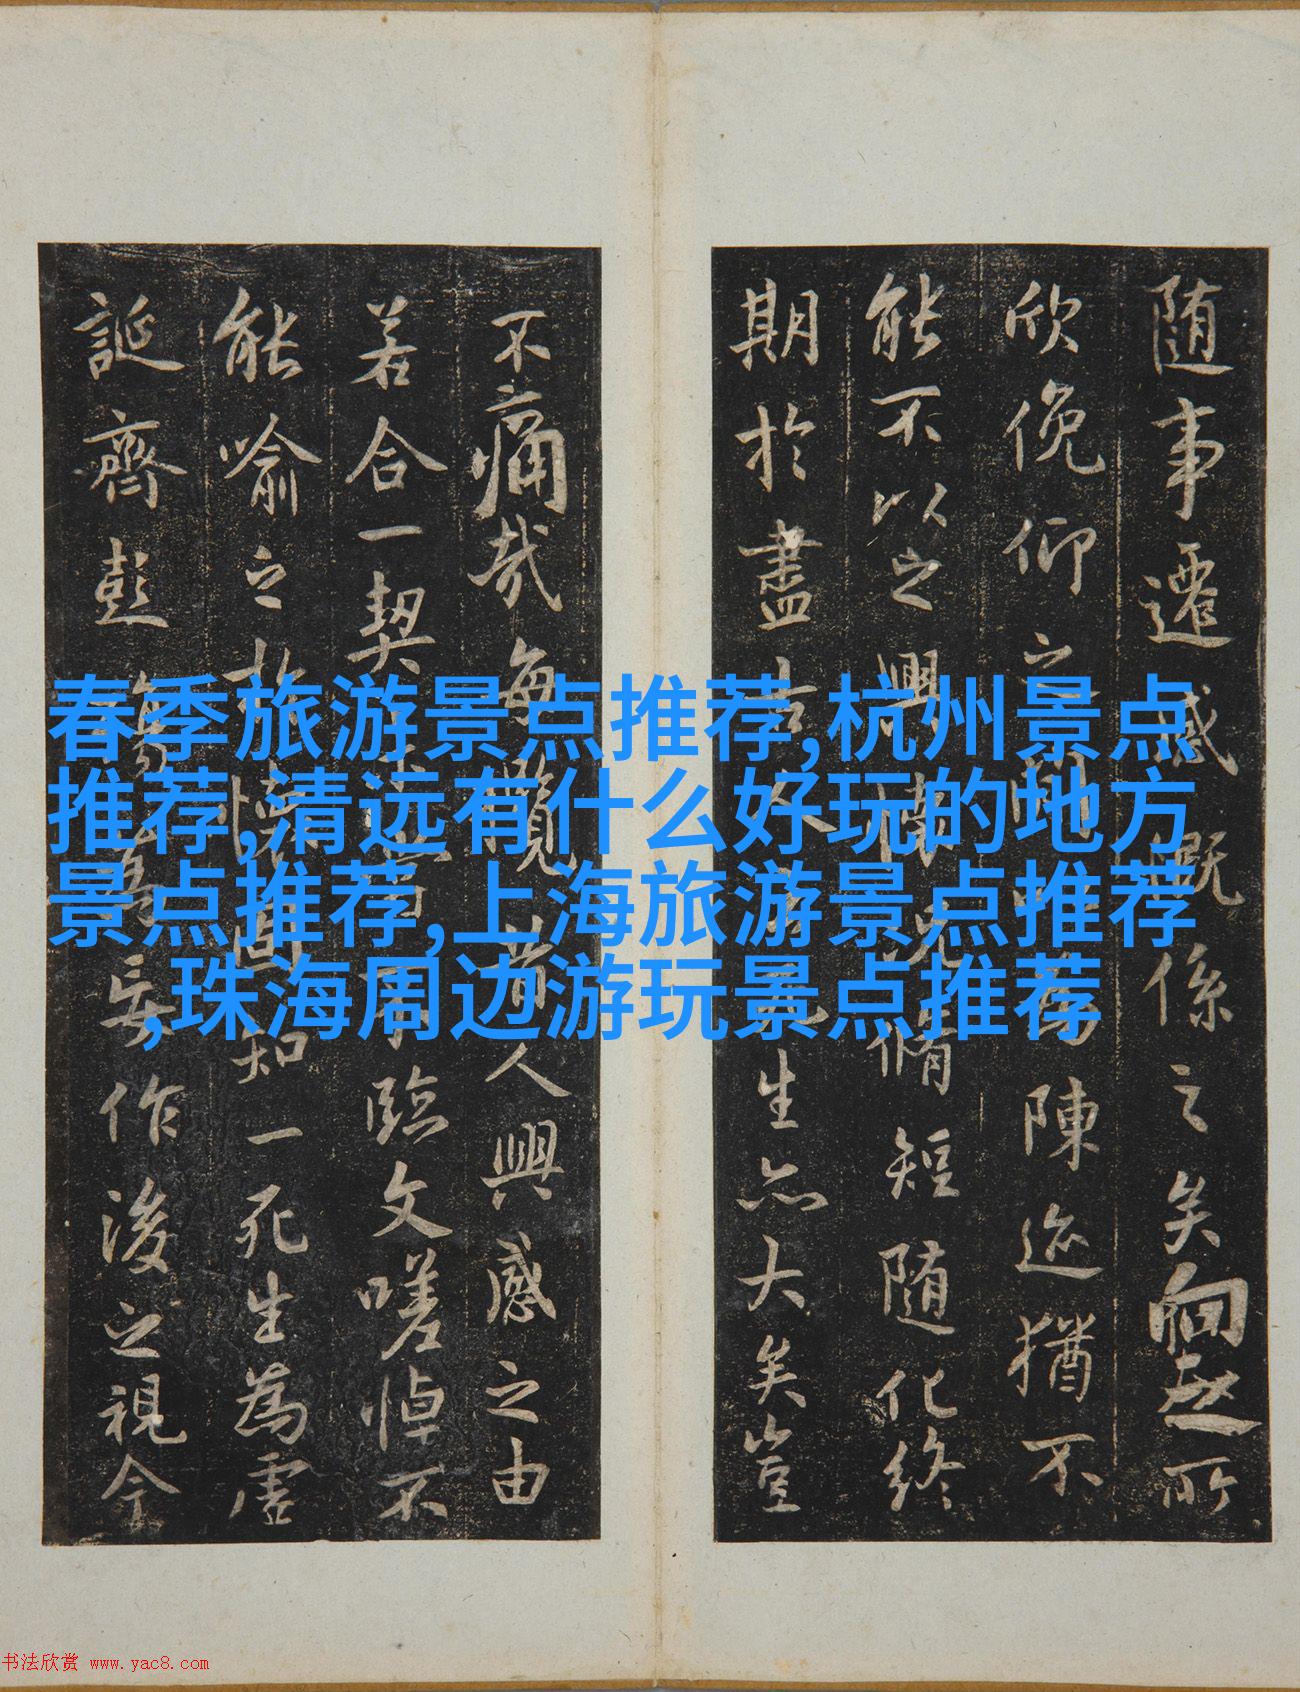 春季旅游景点推荐,杭州景点
推荐,清远有什么好玩的地方
景点推荐,上海旅游景点推荐
,珠海周边游玩景点推荐
随事遷感慨係之矣向之所
欣俛仰之陳迹猶不
能不以之興懷況脩短随化終
期於盡古生亦大矣豈
不痛哉每攬昔人興感之由
若合一契不臨文嗟悼不
能喻之於懷固知一死生為虛
誕齊彭殤為妄作後之視今
书法欣赏 www.yac8.com